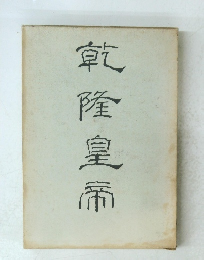 乾隆皇帝